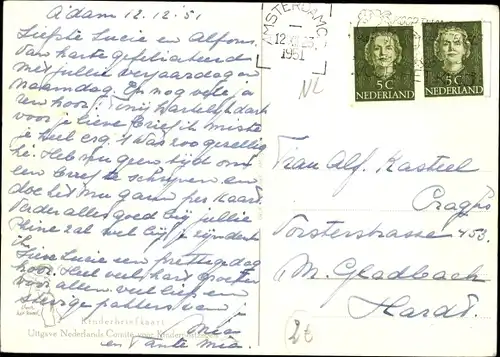 A'dam 12.12.51
Liefste Lucie en Alfons.
Van harte gefeliciteerd
met jullie verjaardag en
naamdag. En nog vele ja
ren hoor. Tinij hartelijk dank
voor je lieve brief ik miste
je heel erg. 't Was zoo gezellig
hè. Heb nu geen tijd om
een brief te schrijven en
doe het nu gauw per kaart.
Verder alles goed bij jullie
Rhine zal wel blij zijn denk
ik.
Lieve Lucie een prettige dag
hoor. Heel veel hart. groeten
voor allen, veel liefs en
stevige pakkers van
Mia
en Tante Mia.
Kinderbriefkaart
Uitgave Nederlands Comité voor Kinderpostzegels
voor
het kind
AMSTERDAM C.
12.XII.25
1951
NL
5 C
NEDERLAND
5 C
NEDERLAND
Frau Alf. Kasteel
Vorsterstrasse 453.
M. Gladbach
Hardt.
2t